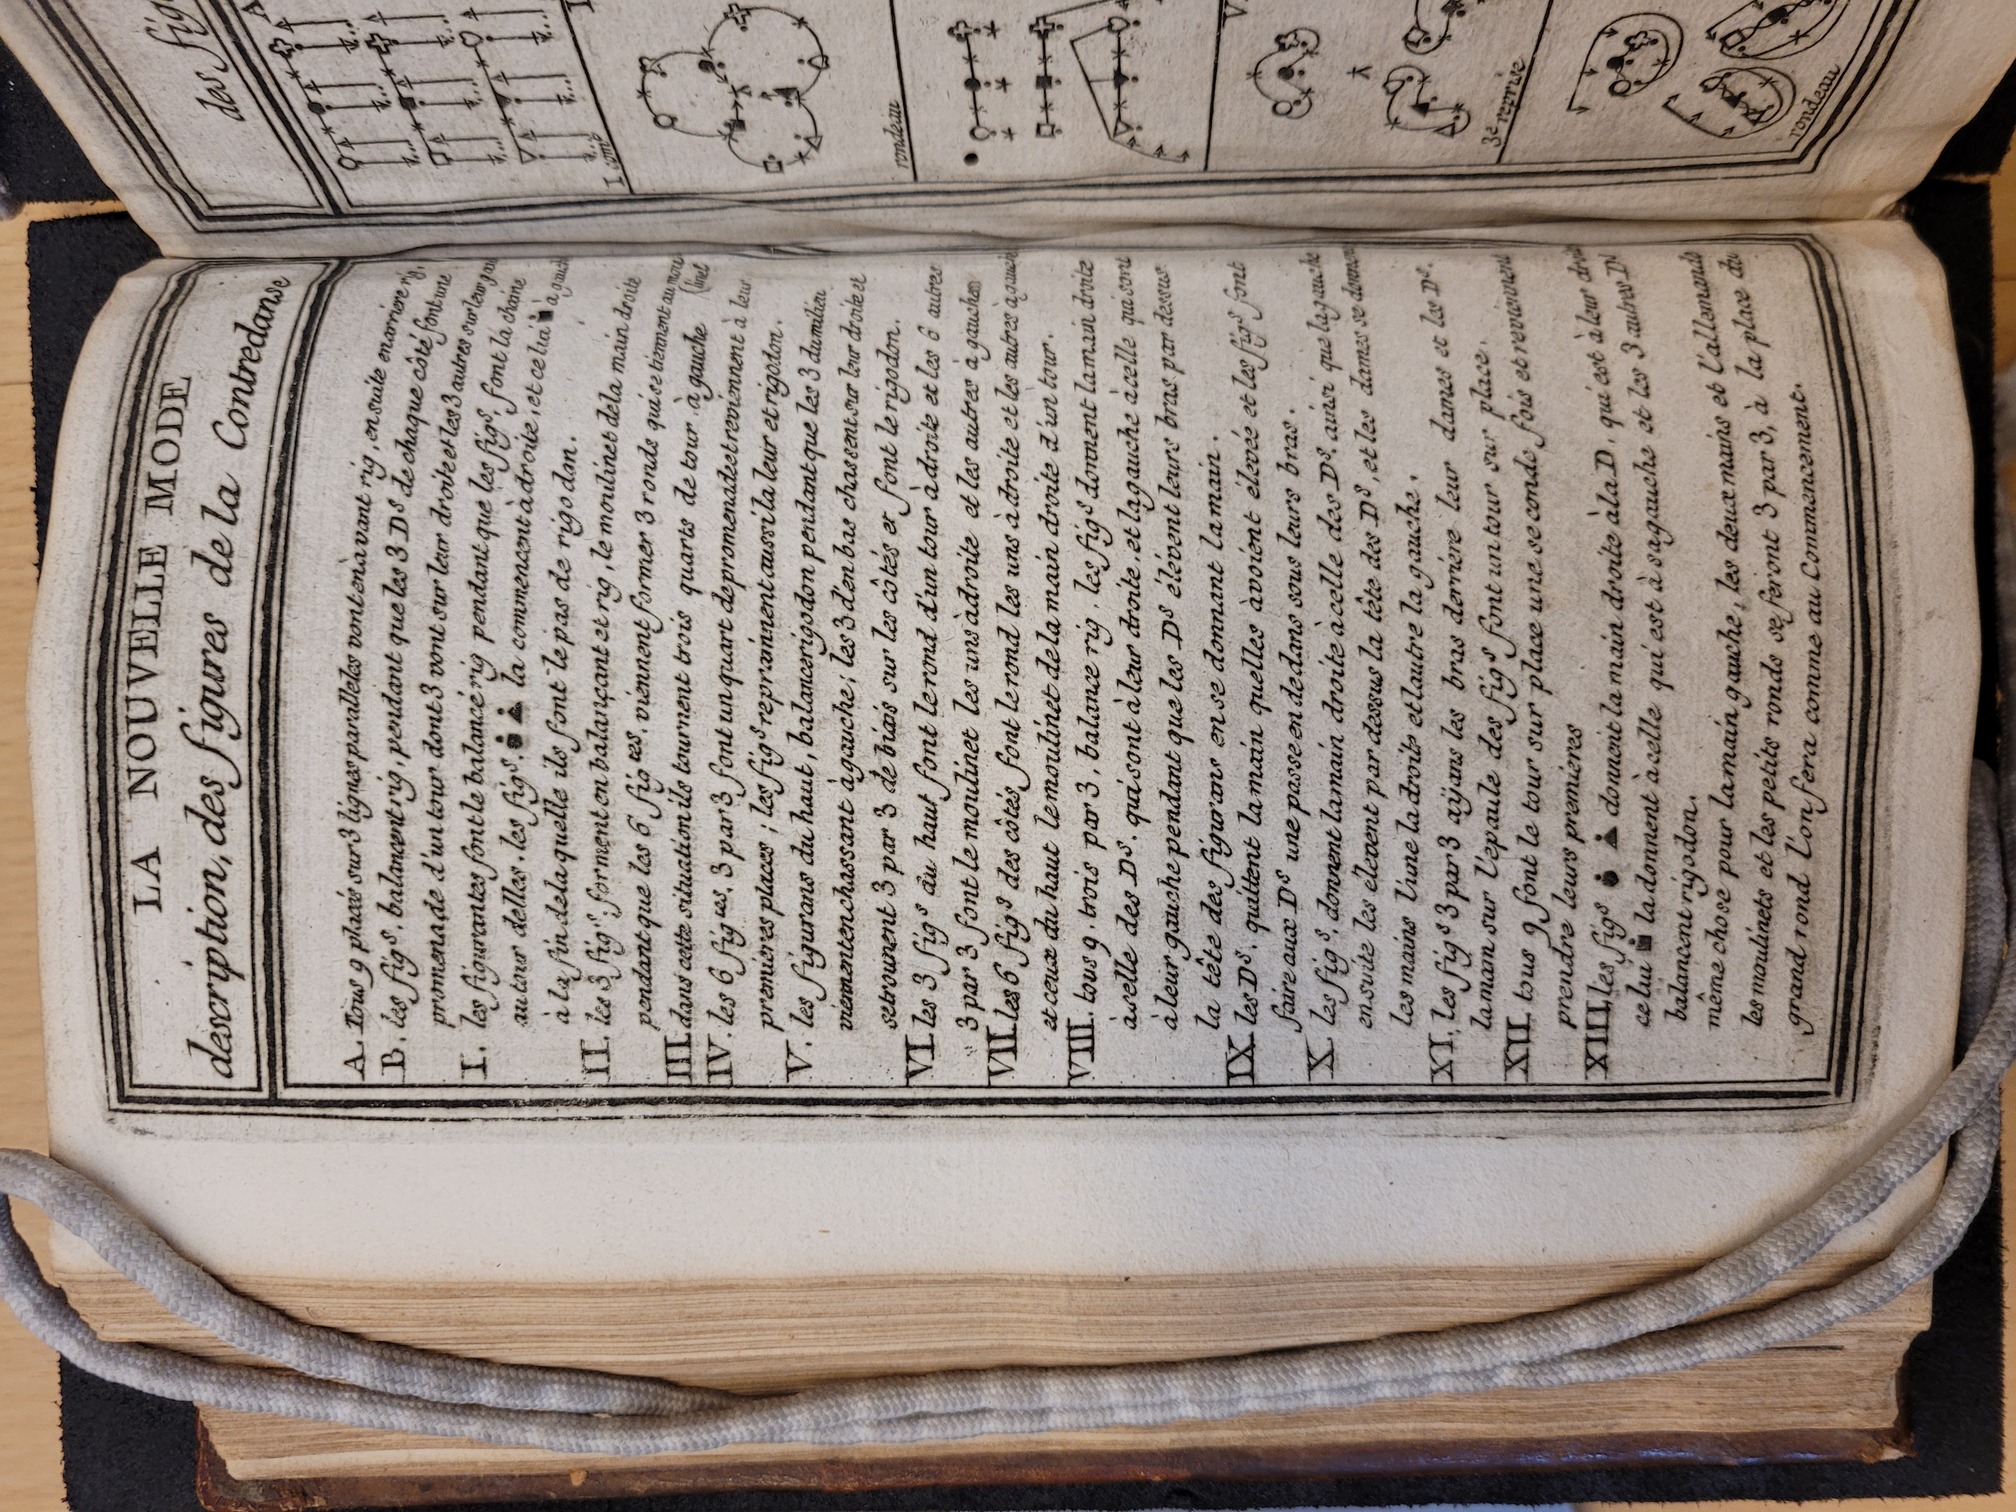 LA NOUVELLE MODE
description, des figures de la Contredanse
A. Tous 9 placés sur 3 lignes paralleles vont en àvant rig, ensuite en arriere rig.
B. les fig.s balancent rig, pendant que les 3 D.s de chaque côté font une
promenade d'un tour dont 3 vont sur leur droite et les 3 autres sur leur gau
I. les figurantes font le balancé rig pendant que les fig.s font la chaine
autour d'elles. les fig.s ● ▲ la commencent à droite, et celui ■ à gauch
à la fin de laquelle ils font le pas de rigodon.
II. les 3 fig.s forment en balançant et rig, le moulinet de la main droite
pendant que les 6 fig.tes viennent former 3 ronds qui se tiennent au mou
(linet
III. dans cette situation ils tournent trois quarts de tour à gauche
IV. les 6 fig.tes 3 par 3 font un quart de promenade et reviennent à leur
premieres places ; les fig.s reprennent aussi la leur et rigodon.
V. les figurans du haut, balancerigodon pendant que les 3 du milieu
viennent en chassant à gauche ; les 3 d'en bas chassent sur leur droite et
se trouvent 3 par 3 de biais sur les côtés et font le rigodon.
VI. les 3 fig.s du haut font le rond d'un tour à droite et les 6 autres
3 par 3 font le moulinet les uns à droite et les autres à gauche
VII. les 6 fig.s des côtés font le rond les uns à droite et les autres à gauch
et ceux du haut le moulinet de la main droite d'un tour.
VIII. tous 9. trois par 3, balance rig. les fig.s donnent la main droite
à celle des D.s qui sont à leur droite. et la gauche à celle qui sont
à leur gauche pendant que les D.s élévent leurs bras par dessus
la tête des figurans en se donnant la main.
IX. les D.s quittent la main quelles àvoient élevée et les fig.s font
faire aux D.s une passe en dedans sous leurs bras.
X. les fig.s donnent la main droite à celle des D.s ainsi que la gauche
ensuite les élevent par dessus la tête des D.s, et les dames se donnent
les mains l'une la droite et l'autre la gauche.
XI. les fig.s 3 par 3 aÿans les bras derriére leur dames et les D.s
la main sur l'épaule des fig.s font un tour sur place.
XII. tous 9 font le tour sur place une seconde fois et reviennent
prendre leurs premieres
XIII. les fig.s ● ▲ donnent la main droite à la D. qui est à leur droit
celui ■ la donnent à celle qui est à sa gauche et les 3 autres D.s
balancent rigodon.
même chose pour la main gauche, les deux mains et l'allemande
les moulinets et les petits ronds se feront 3 par 3, à la place du
grand rond L'on fera comme au Commencement.
des fig
A
1.
rondeau
3.e reprise
rondeau